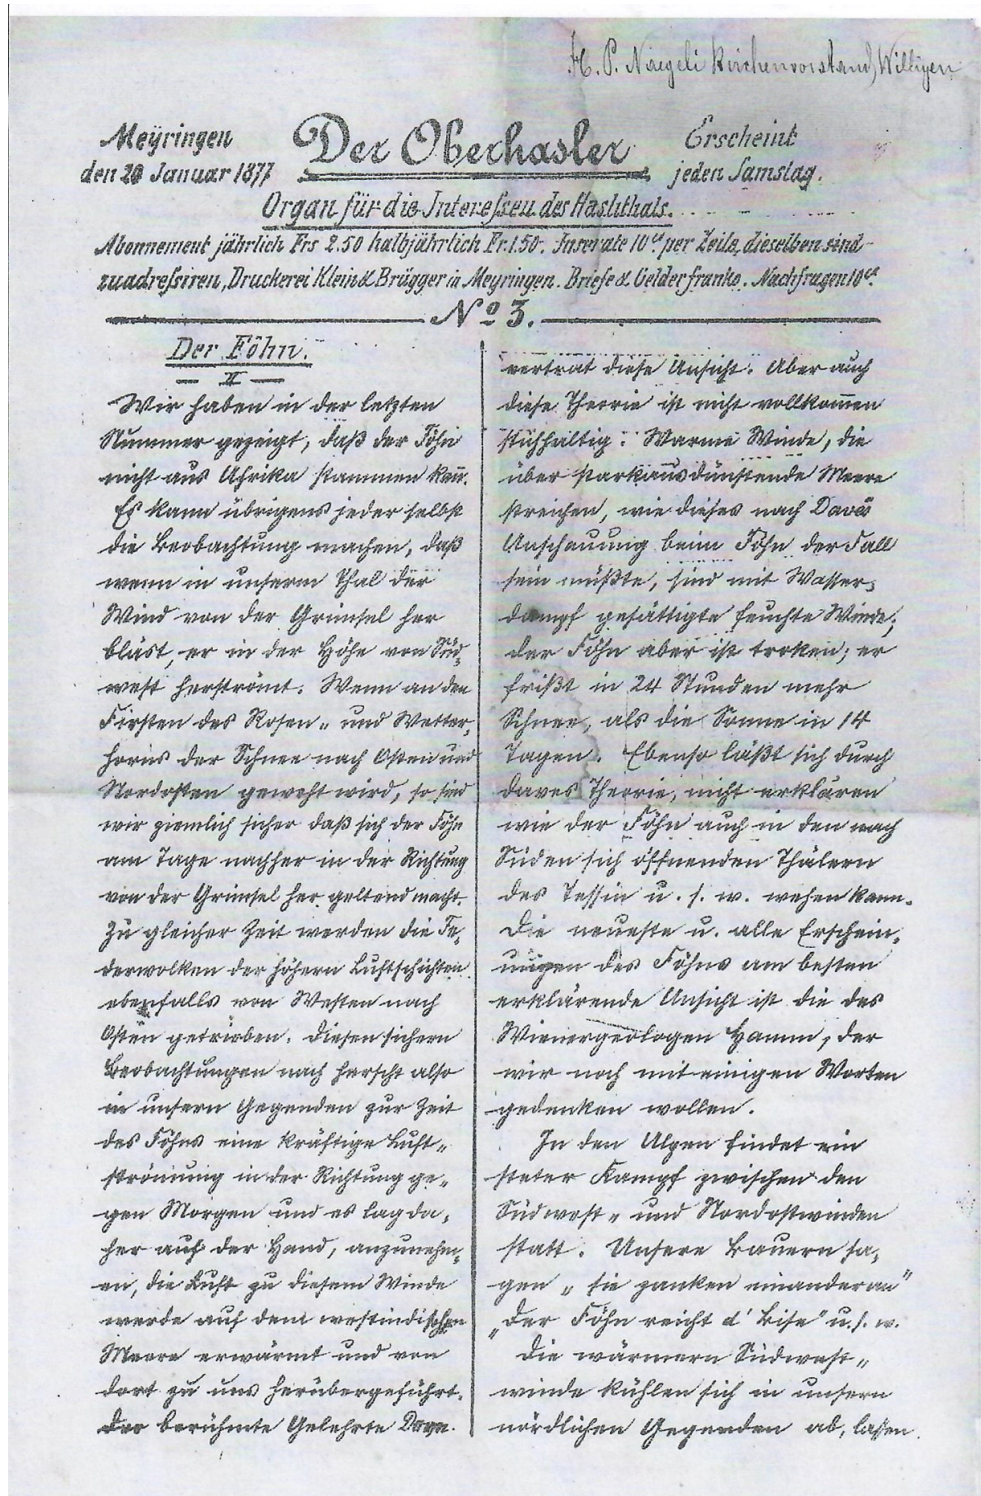 H. P. Naegeli Kirchenvorstand, Willigen
Meÿringen
den 20 Januar 1877
Der Oberhasler
Erscheint
jeden Samstag.
Organ für die Interessen des Haslithals.
Abonnement jährlich Frs 2.50 halbjährlich Fr. 1.50. Inserate 10 ct per Zeile, dieselben sind
zuadressiren, Druckerei Klein & Brügger in Meyringen. Briefe & Gelder franko. Nachfragen 10 ct.
No 3.
Der Föhn.
— II —
Wir haben in der letzten
Nummer gezeigt, daß der Föhn
nicht aus Afrika stammen kann̄.
Es kann übrigens jeder selbst
die Beobachtung machen, daß
wenn in unserm Thal der
Wind von der Grimsel her
bläst, er in der Höhe von Süd„
west herströmt. Wenn an den
Firsten des Rosen„ und Wetter„
horns der Schnee nach Osten und
Nordosten geweht wird, so sind
wir ziemlich sicher daß sich der Föhn
am Tage nachher in der Richtung
von der Grimsel her geltend macht.
Zu gleicher Zeit werden die Fe„
derwolken der höhern Luftschichten
ebenfalls von Westen nach
Osten getrieben. Diesen sichern
Beobachtungen nach herscht also
in unsern Gegenden zur Zeit
des Föhns eine kräftige Luft„
strömung in der Richtung ge„
gen Morgen und es lag da„
her auf der Hand, anzunehm„
en, die Luft zu diesem Winde
werde auf dem westindischen
Meere erwärmt und von
dort zu uns herübergeführt.
Der berühmte Gelehrte Dove
vertrat diese Ansicht. Aber auch
diese Theorie ist nicht vollkom̄en
stichhaltig. Warme Winde, die
über stark ausdünstende Meere
streichen, wie dieses nach Doves
Anschauung beim Föhn der Fall
sein müßte, sind mit Wasser„
dampf gesättigte feuchte Winde;
der Föhn aber ist troken; er
frißt in 24 Stunden mehr
Schnee, als die Sonne in 14
Tagen. Ebenso läßt sich durch
Doves Theorie, nicht erklären
wie der Föhn auch in den nach
Süden sich öffnenden Thälern
des Tessin u. s. w. wehen kann.
Die neueste u. alle Erschein„
ungen des Föhns am besten
erklärende Ansicht ist die des
Wienergeologen Hann, der
wir noch mit einigen Worten
gedenken wollen.
In den Alpen findet ein
steter Kampf zwischen den
Südwest„ und Nordostwinden
statt. Unsere Bauern sa„
gen „ sie zanken einander an"
„Der Föhn reicht d' Bise" u. s. w.
Die wärmern Südwest„
winde kühlen sich in unsern
nördlichen Gegenden ab, lassen